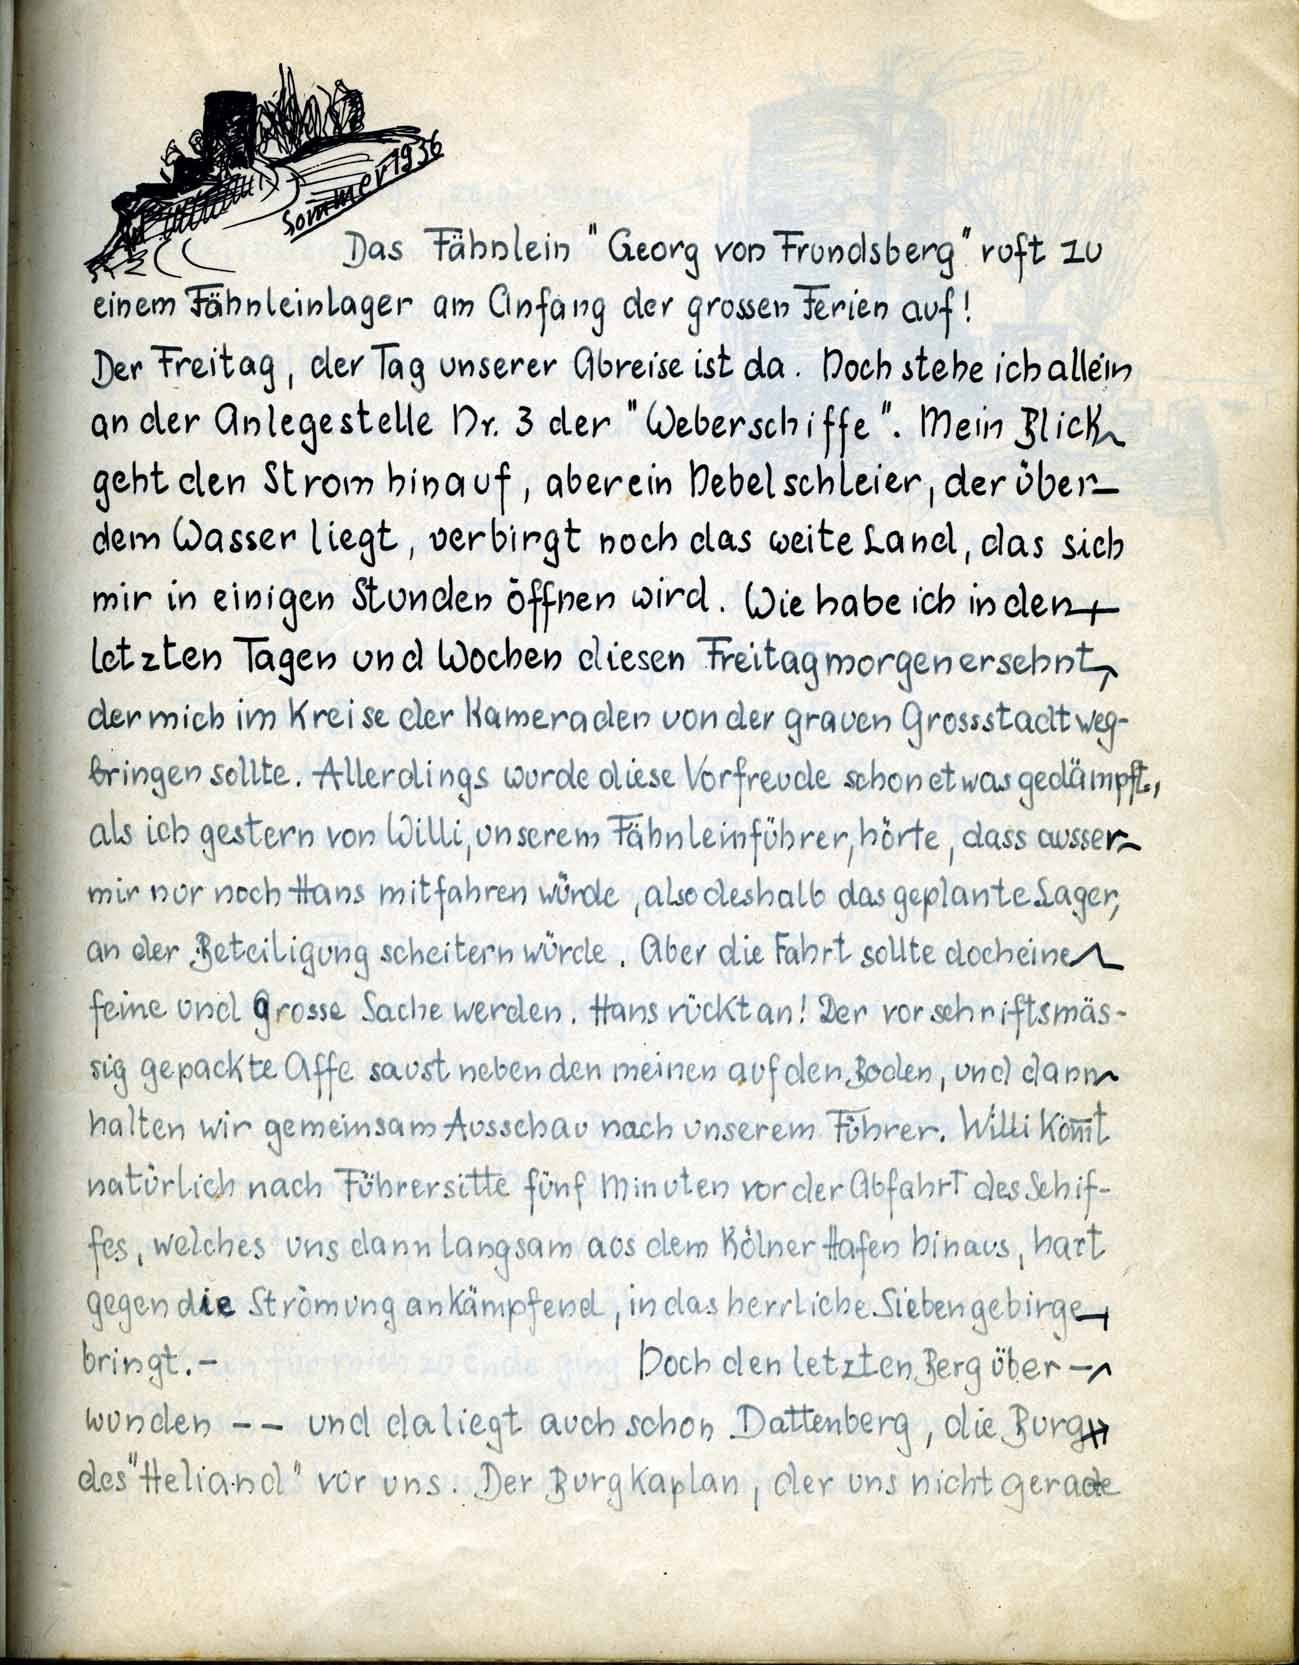 Sommer 1936
Das Fähnlein "Georg von Frundsberg" ruft zu
einem Fähnleinlager am Anfang der grossen Ferien auf!
Der Freitag, der Tag unserer Abreise ist da. Noch stehe ich allein
an der Anlegestelle Nr. 3 der "Weberschiffe". Mein Blick
geht den Strom hinauf, aber ein Nebelschleier, der über
dem Wasser liegt, verbirgt noch das weite Land, das sich
mir in einigen Stunden öffnen wird. Wie habe ich in den
letzten Tagen und Wochen diesen Freitagmorgen ersehnt,
der mich im Kreise der Kameraden von der grauen Grossstadt weg-
bringen sollte. Allerdings wurde diese Vorfreude schon etwas gedämpft,
als ich gestern von Willi, unserem Fähnleinführer, hörte, dass ausser
mir nur noch Hans mitfahren würde, also deshalb das geplante Lager,
an der Beteiligung scheitern würde. Aber die Fahrt sollte doch eine
feine und grosse Sache werden. Hans rückt an! Der vorschriftsmäs-
sig gepackte Affe saust neben den meinen auf den Boden, und dann
halten wir gemeinsam Ausschau nach unserem Führer. Willi kom̅t
natürlich nach Führersitte fünf Minuten vor der Abfahrt des Schif-
fes, welches uns dann langsam aus dem Kölner Hafen hinaus, hart
gegen die Strömung ankämpfend, in das herrliche Siebengebirge
bringt. - Noch den letzten Berg über -
wunden -- und da liegt auch schon Dattenberg, die Burg
des "Heliand" vor uns. Der Burgkaplan, der uns nicht gerade